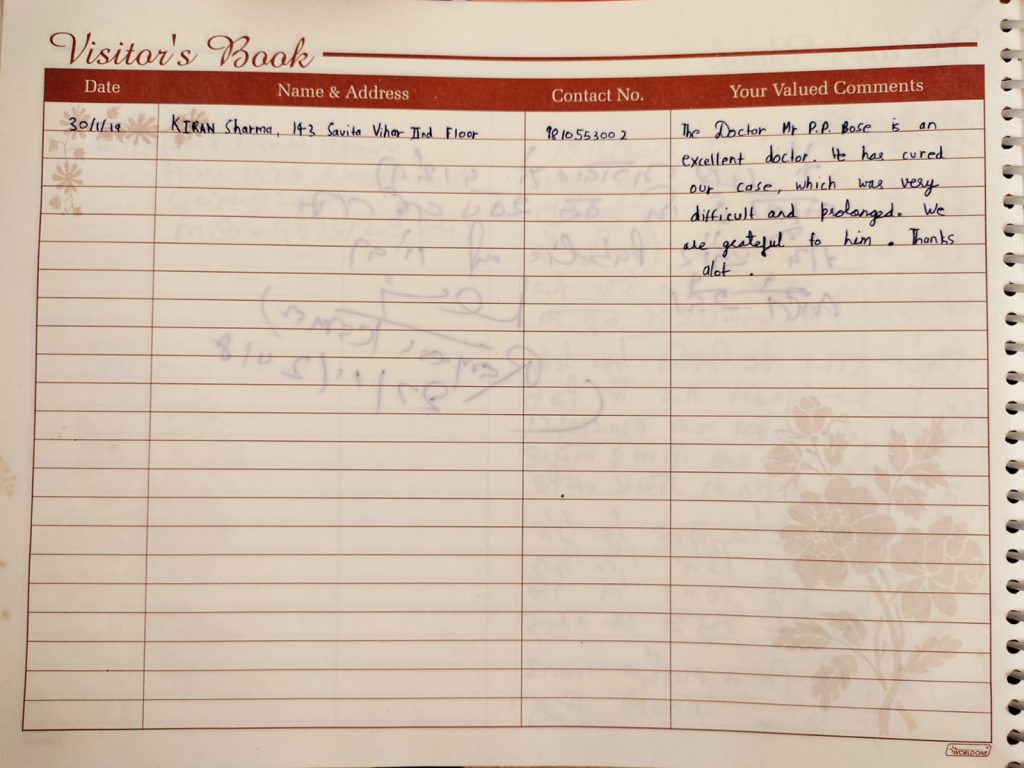 Visitor's Book
Date Name & Address Contact No. Your Valued Comments
30/1/19 KIRAN Sharma, 143 Savita Vihar IInd Floor 9810553002 The Doctor Mr P.P. Bose is an
excellent doctor. He has cured
our case, which was very
difficult and prolonged. We
are grateful to him. Thanks
alot.
WORLDONE